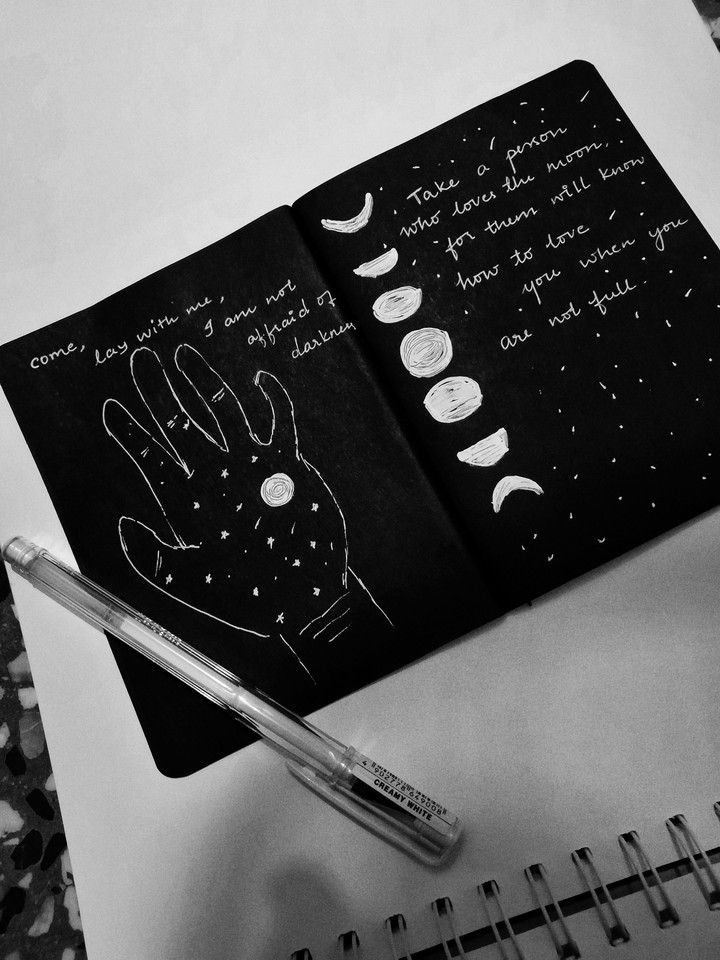 come,
lay with me,
I am not
affraid of
darkness
Take a person
who loves the moon,
for them will know
how to love
you when you
are not full.
4 902778 649008
CREAMY WHITE